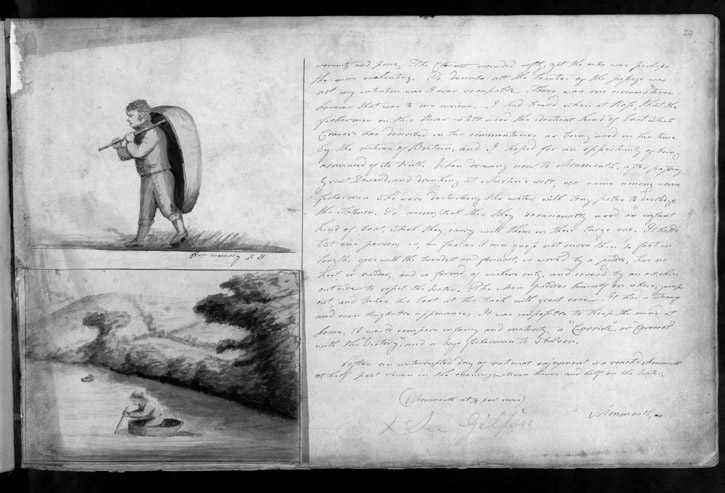 24
serenity and pine, The Clarinet sounded softly, yet the echo was perhaps
the more enchanting. To describe all the beauties of this passage was
not my intention was I ever so capable. There was one circumstance
however that was to me curious. I had heard when at Ross, that the
fishermen on this River still used the identical kind of boat which
Caesar has described in his commentaries as being used in his time
by the natives of Britain, and I hoped for an opportunity of being
convinced of its truth. When drawing near to Monmouth, after passing
Great Doward, and drinking at well, we came among some
fishermen who were disturbing the water with long poles to dislodge
the Salmon. To accomplish this they occasionally used an infant
kind of boat, which they carry with them in their large one. It holds
but one person, is, as far as I can guess not more than 4 feet in
length, goes with the broadest end foremost, is worked by a paddle, has no
keel or rudder, and is formed of wickers only, and covered by an
outside to repel the water. The Man paddles himself on shore, jumps
out and takes his boat at his back with great care. It had a strange
and even appearance. It was impossible to keep the mind at
home, it would compare infancy and maturity, a Corricle or Coracle
with the "Victory" and a huge fisherman to Nelson.
After an uninterrupted day of rational enjoyment we reached Monmouth
at half past seven in the evening, seven hours and half on the water.
(Monmouth at &
Monmouth
from memory R B
x See Gilpin